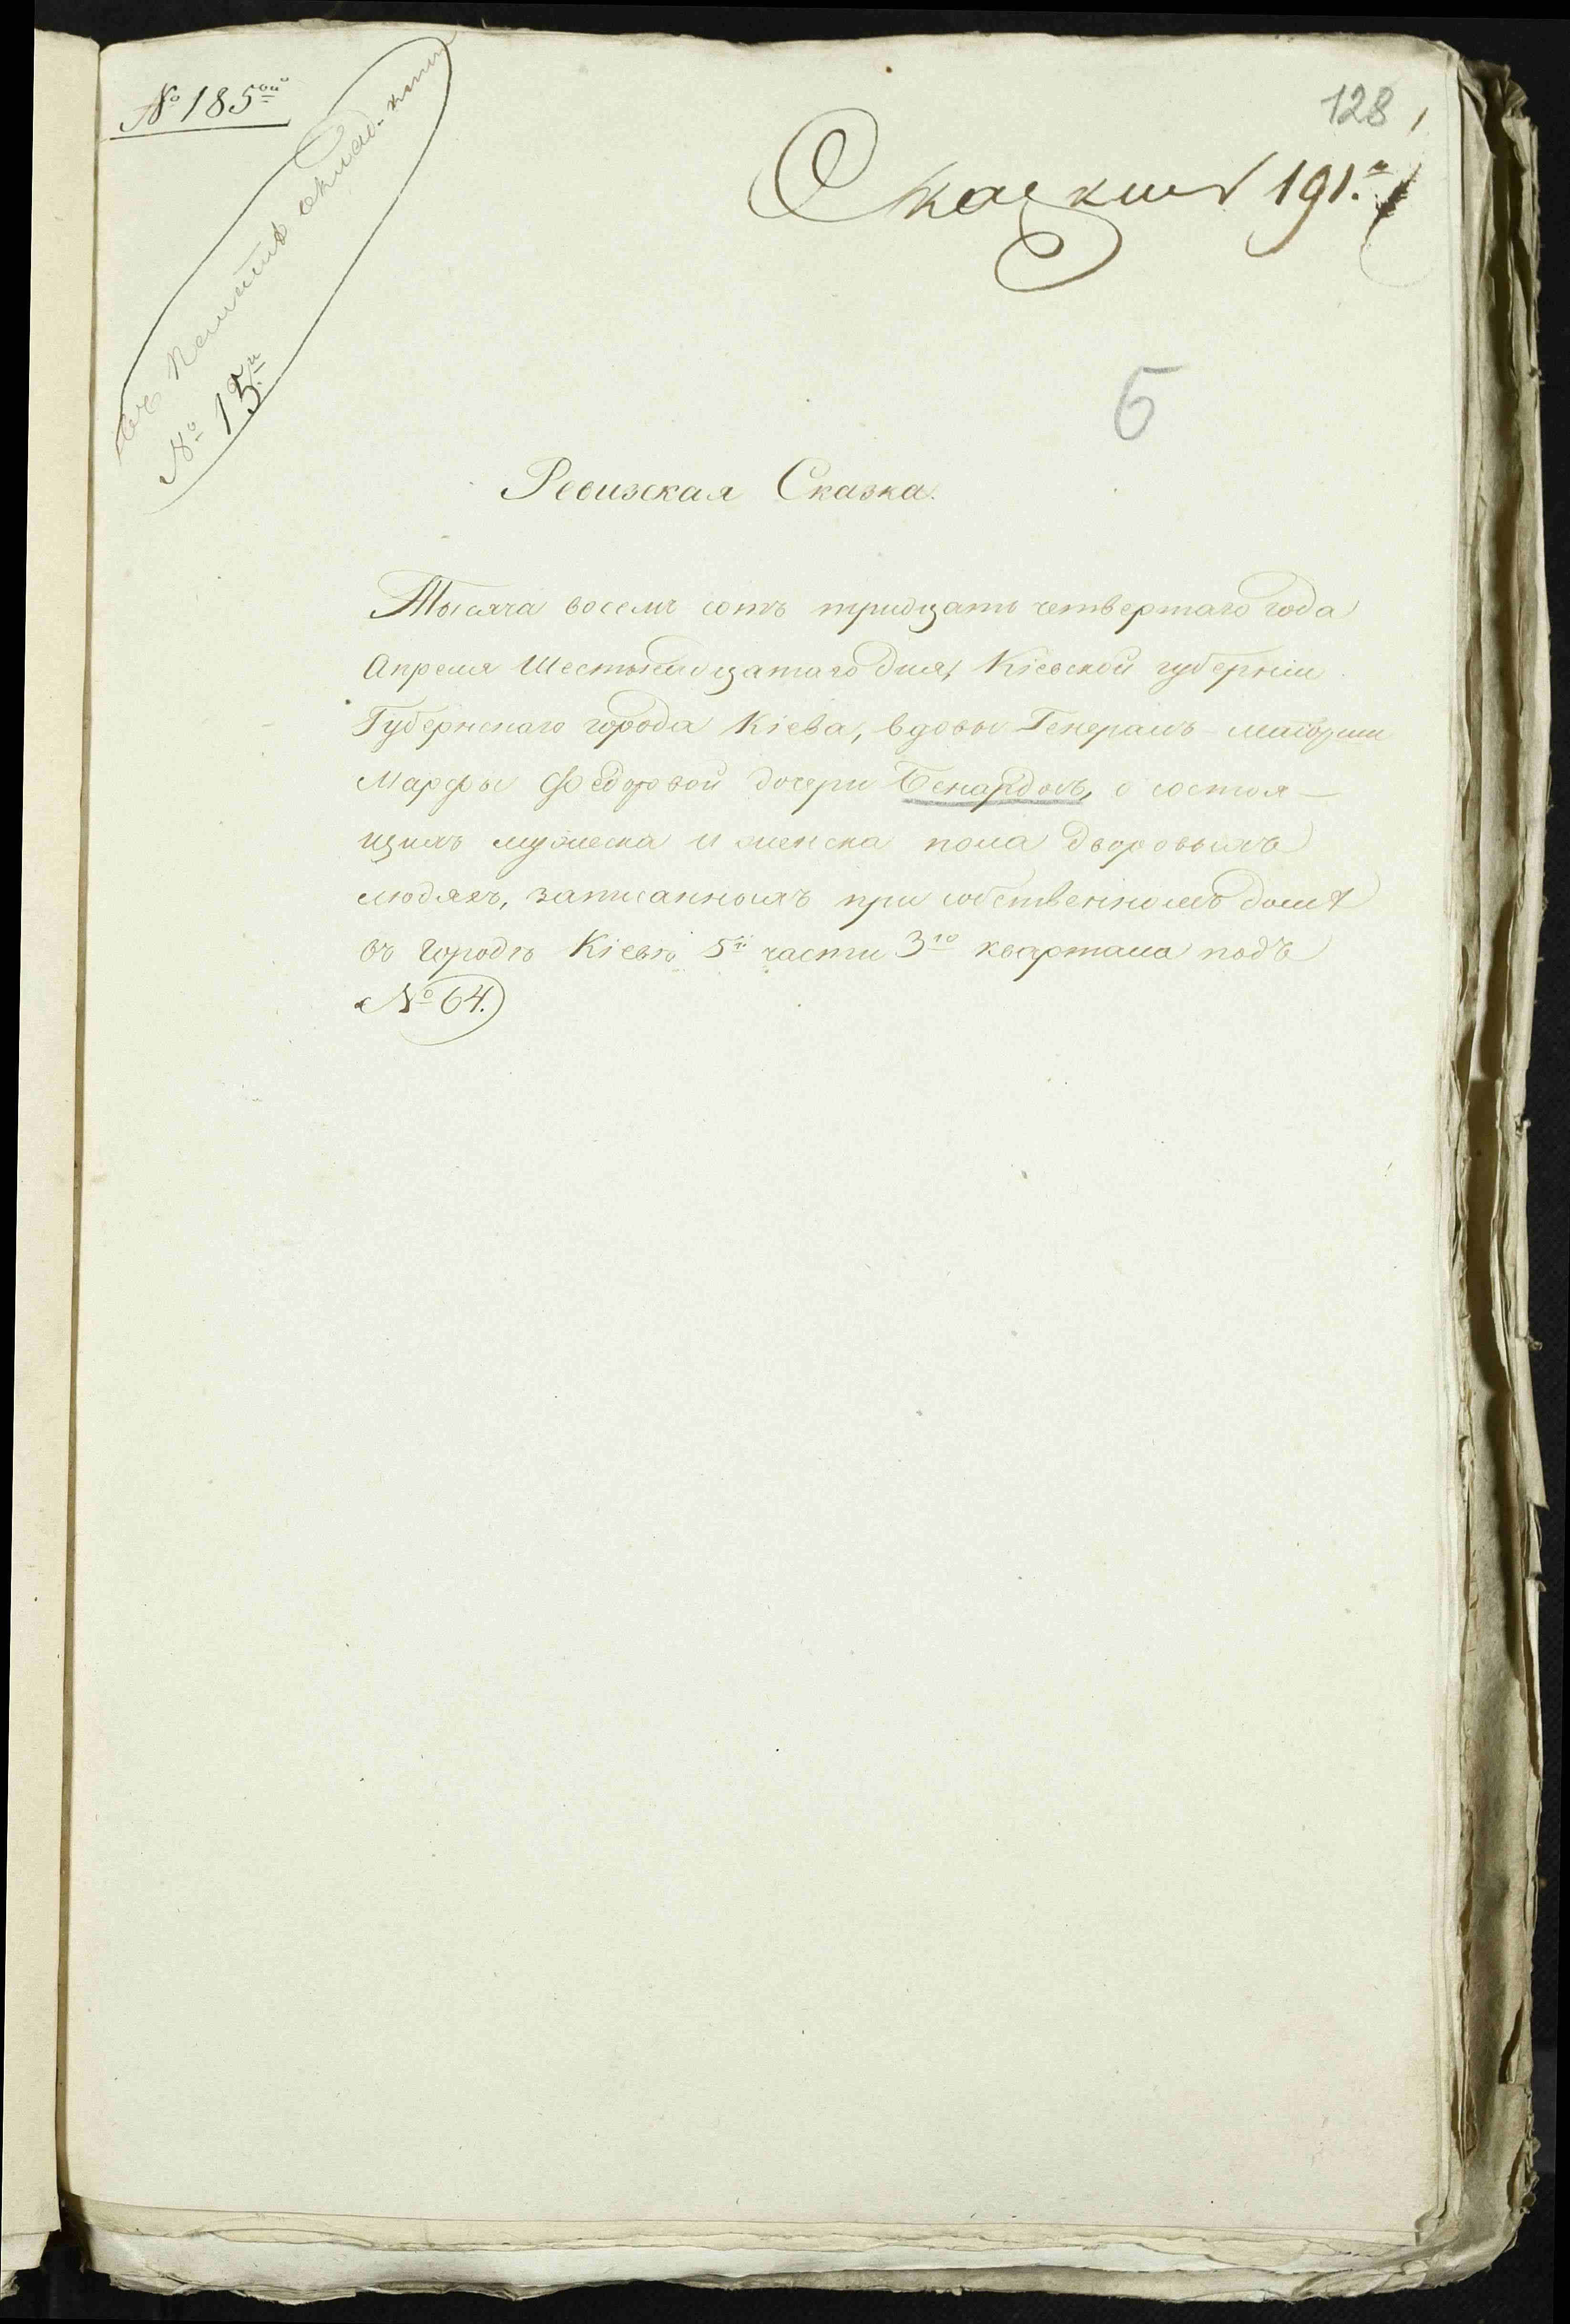 № 185ой
128
Сказки 191.я
№ 15й
6
Ревизская Сказка.
Тысяча восемь сотъ тридцать четвертаго года
Апреля Шестьнадцатаго дня, Кіевской губерніи
Губернскаго города Кіева, вдовы Генералъ-маіорши
Марфы Федоровой дочери Бенардовъ, о состоя-
щихъ мужеска и женска пола дворовыхъ
людяхъ, записанныхъ при собственномъ домѣ
въ городѣ Кіевѣ 5й части 3го квартала подъ
№ 64.